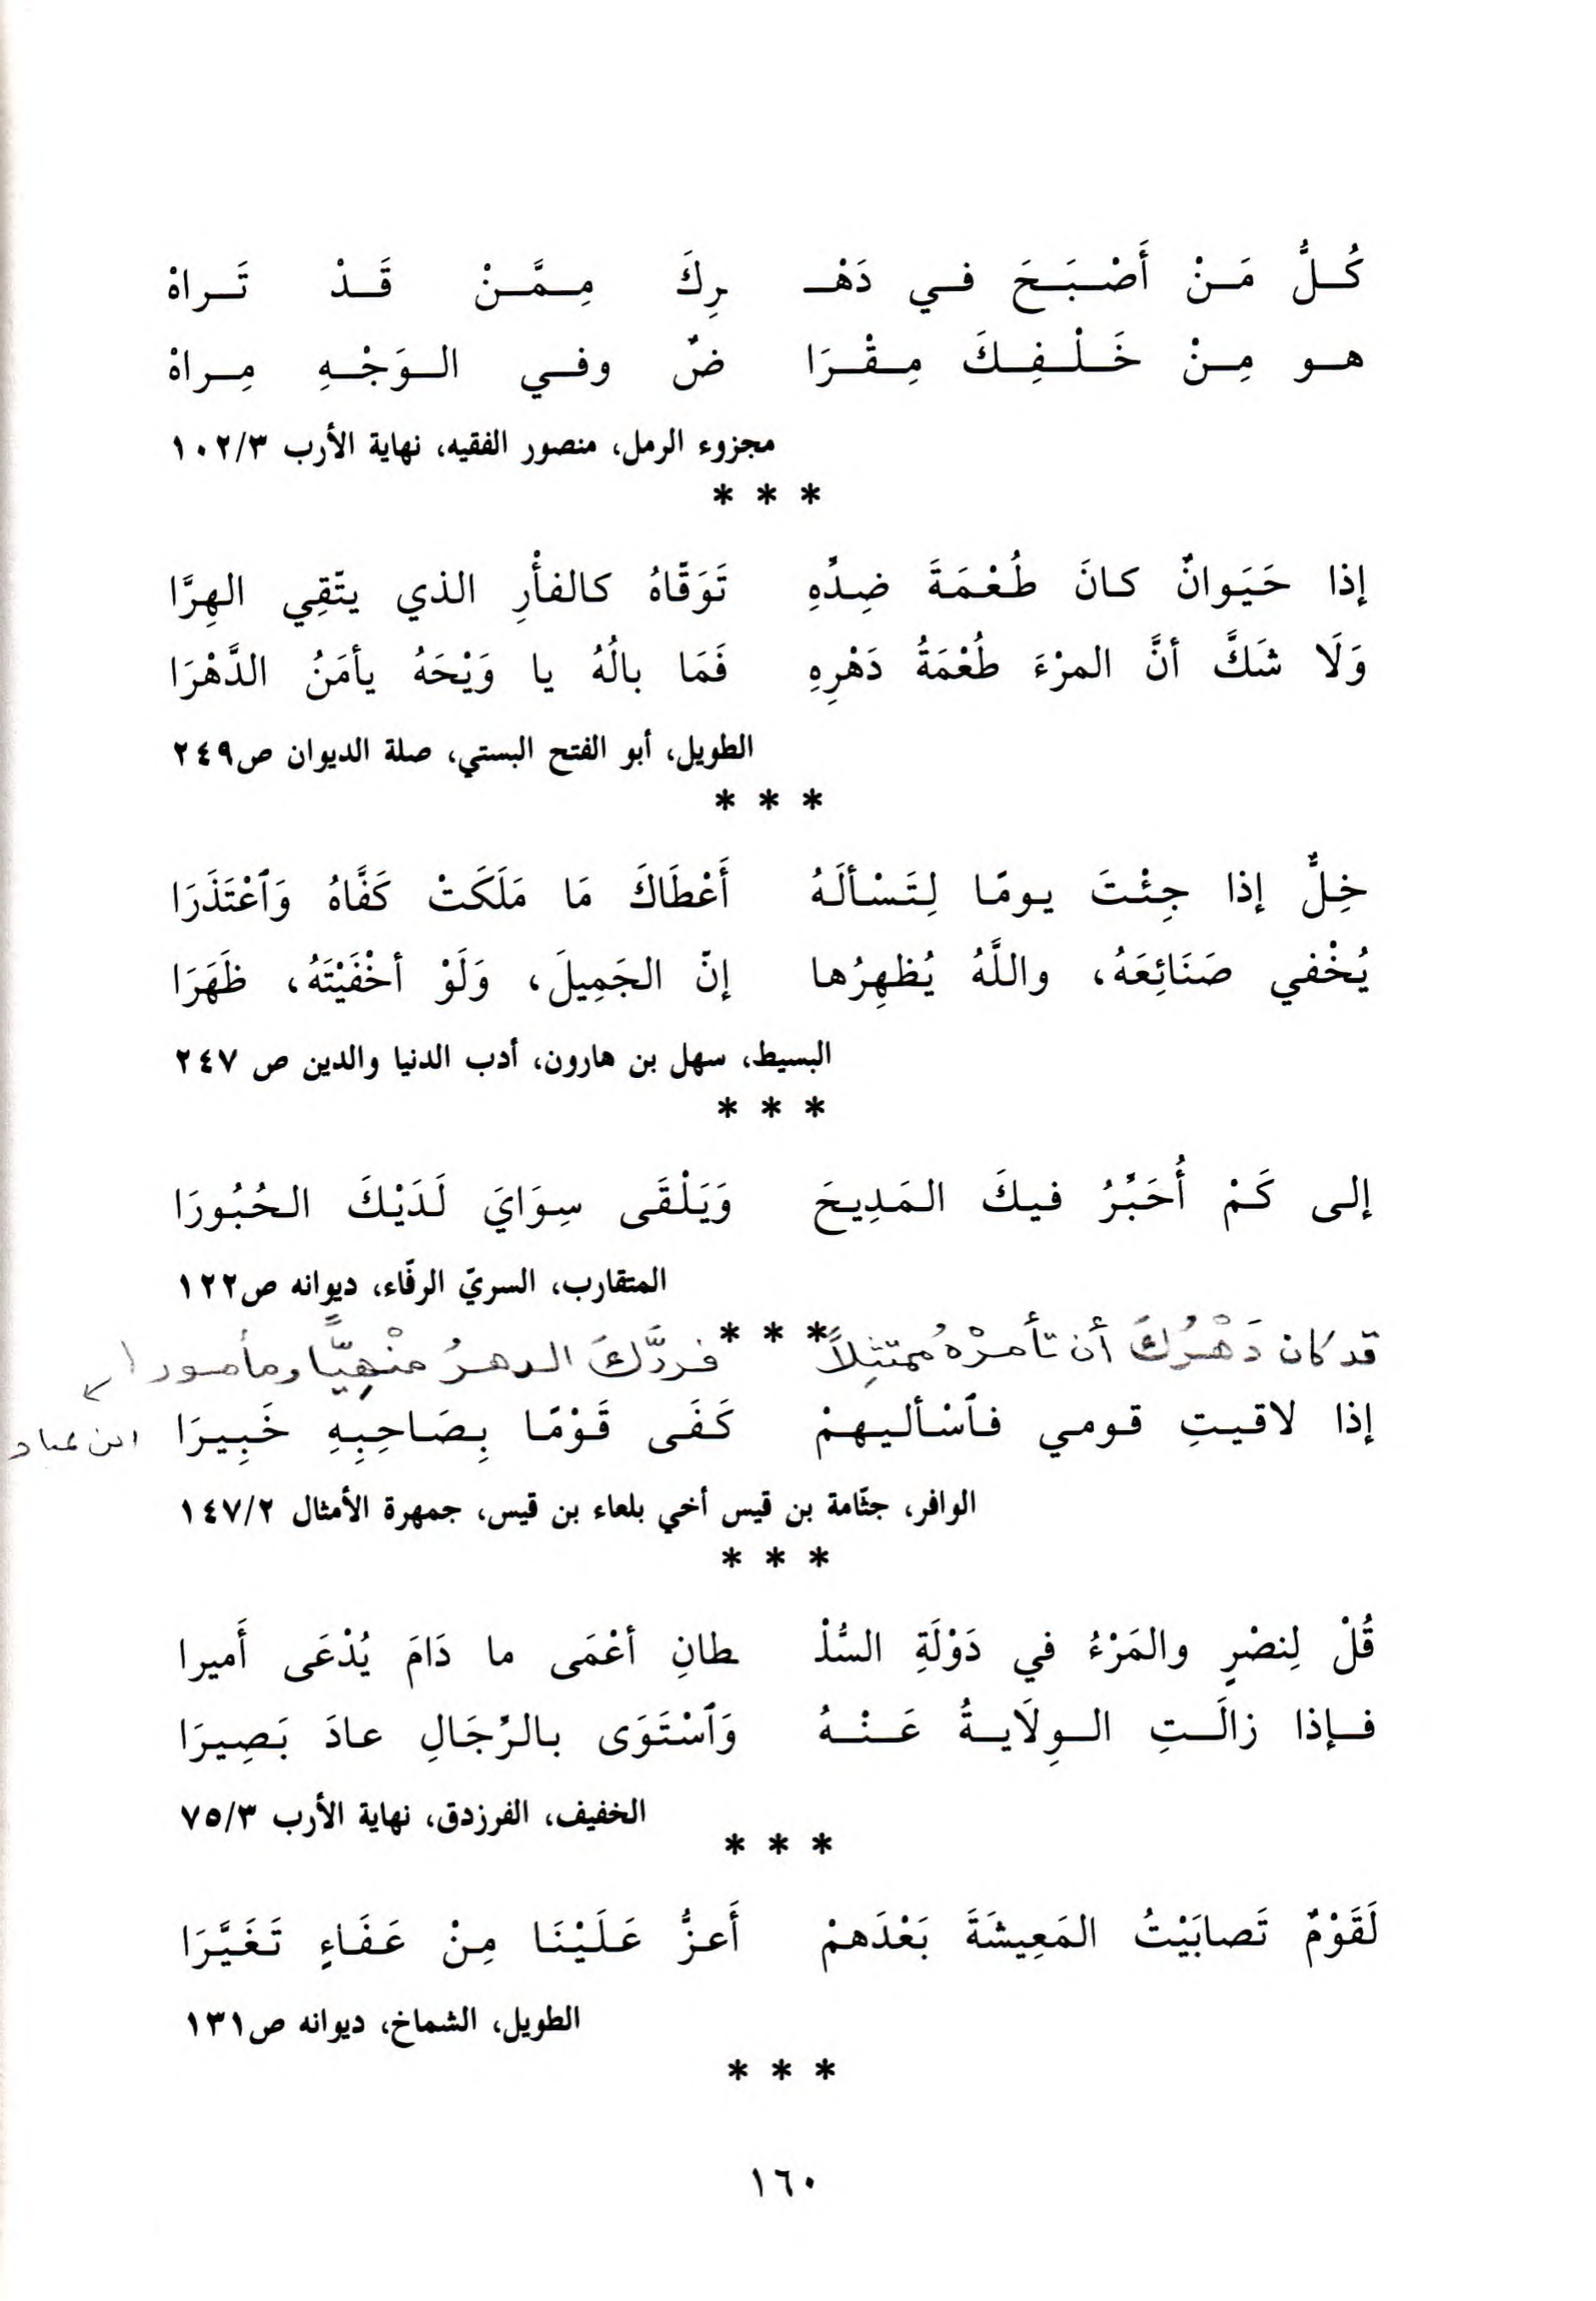 كُـلُّ مَـنْ أَصْـبَـحَ فـي دَهْـ ـرِكَ مِـمَّـنْ قَـدْ تَـراهْ
هـو مِـنْ خَـلْـفِـكَ مِـقْـرَا ضٌ وفـي الـوَجْـهِ مِـراهْ
مجزوء الرمل، منصور الفقيه، نهاية الأرب ١٠٢/٣
* * *
إذا حَيَـوانٌ كـانَ طُـعْـمَـةَ ضِـدِّهِ تَوَقّاهُ كالفأْرِ الذي يتّقِي الهِرَّا
وَلَا شَكَّ أنَّ المرْءَ طُعْمَةُ دَهْرِهِ فَمَا بالُهُ يا وَيْحَهُ يأمَنُ الدَّهْرَا
الطويل، أبو الفتح البستي، صلة الديوان ص٢٤٩
* * *
خِلٌّ إذا جِئْتَ يومًا لِتَسْألَهُ أَعْطَاكَ مَا مَلَكَتْ كَفَّاهُ وَٱعْتَذَرَا
يُخْفي صَنَائِعَهُ، واللَّهُ يُظهِرُها إنّ الجَمِيلَ، وَلَوْ أخْفَيْتَهُ، ظَهَرَا
البسيط، سهل بن هارون، أدب الدنيا والدين ص ٢٤٧
* * *
إلى كَمْ أُحَبِّرُ فيكَ المَدِيحَ وَيَلْقَى سِوَايَ لَدَيْكَ الحُبُورَا
المتقارب، السريّ الرفّاء، ديوانه ص١٢٢
* * *
قد كان دَهْرُكَ أن تأمرْهُ ممتثِلاً فردَّكَ الدهرُ منْهِيًّا ومأمورا
ابن عباد
إذا لاقيتِ قومي فٱسْأليهمْ كَفَى قَوْمًا بِصَاحِبِهِ خَبِيرَا
الوافر، جثّامة بن قيس أخي بلعاء بن قيس، جمهرة الأمثال ١٤٧/٢
* * *
قُلْ لِنصْرٍ والمَرْءُ في دَوْلَةِ السُّلْـ ـطانِ أعْمَى ما دَامَ يُدْعَى أَميرا
فـإذا زالَـتِ الـوِلَايـةُ عَـنْـهُ وَٱسْتَوَى بالرِّجَالِ عادَ بَصِيرَا
الخفيف، الفرزدق، نهاية الأرب ٧٥/٣
* * *
لَقَوْمٌ تَصابَيْتُ المَعِيشَةَ بَعْدَهمْ أَعزُّ عَلَيْنَا مِنْ عَفَاءٍ تَغَيَّرَا
الطويل، الشماخ، ديوانه ص١٣١
* * *
١٦٠